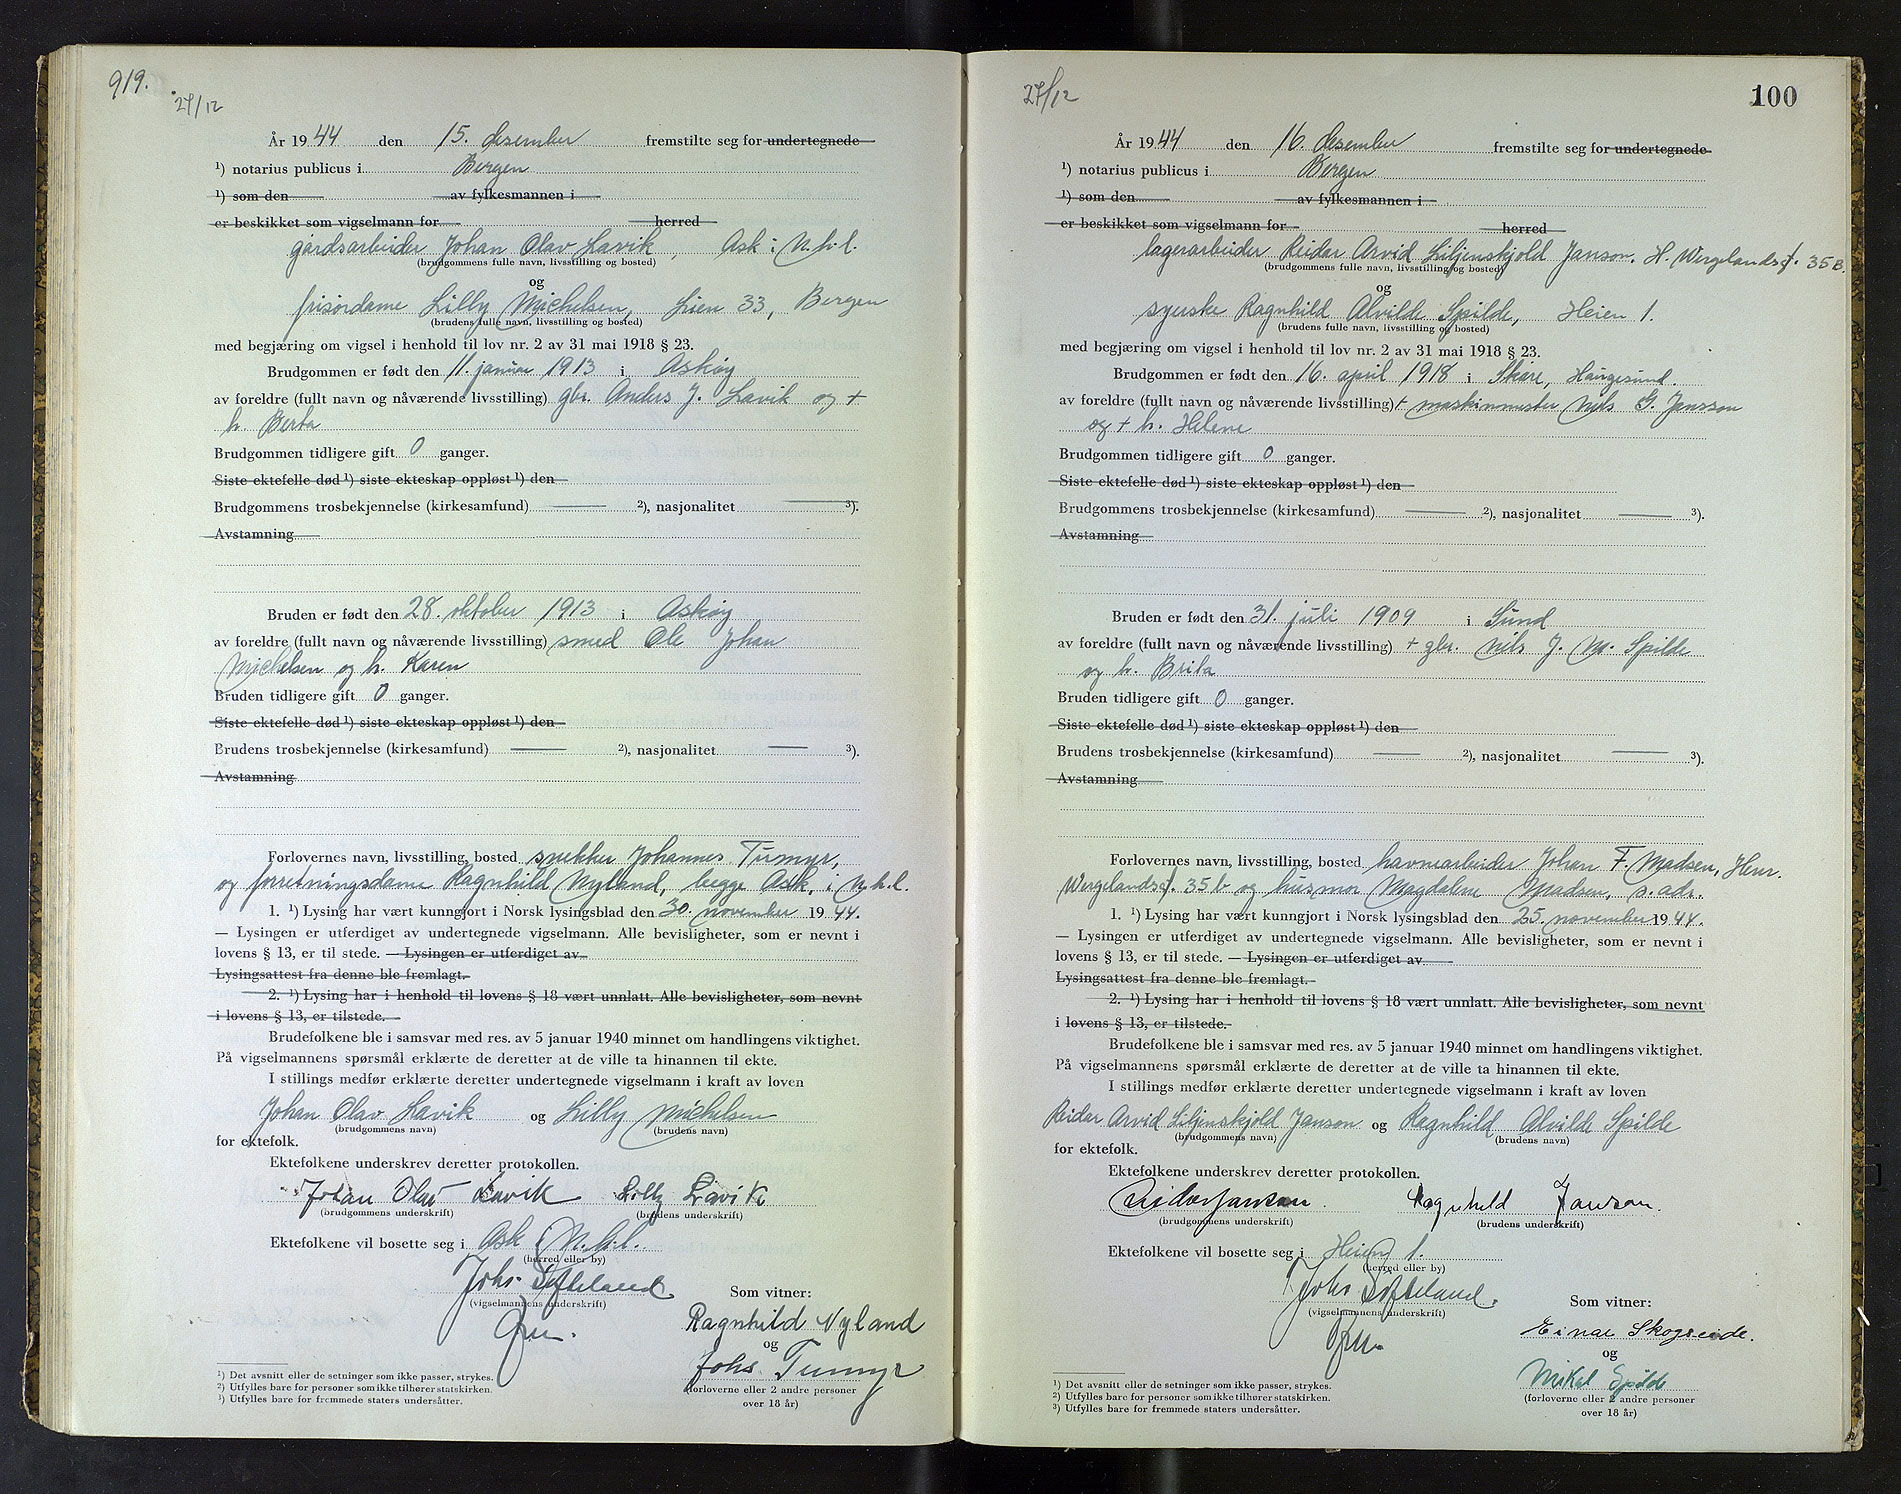 919.
27/12
År 1944 den 15. desember fremstilte seg for undertegnede
¹) notarius publicus i Bergen
¹) som den av fylkesmannen i
er beskikket som vigselmann for herred
gårdsarbeider Johan Olav Lavik, Ask i N.h.l.
(brudgommens fulle navn, livsstilling og bosted)
og
frisørdame Lilly Michelsen, Lien 33, Bergen
(brudens fulle navn, livsstilling og bosted)
med begjæring om vigsel i henhold til lov nr. 2 av 31 mai 1918 § 23.
Brudgommen er født den 11. januar 1913 i Askøy
av foreldre (fullt navn og nåværende livsstilling) gbr. Anders J. Lavik og +
h. Berta
Brudgommen tidligere gift 0 ganger.
Siste ektefelle død ¹) siste ekteskap oppløst ¹) den
Brudgommens trosbekjennelse (kirkesamfund) ²), nasjonalitet ³).
Avstamning
Bruden er født den 28. oktober 1913 i Askøy
av foreldre (fullt navn og nåværende livsstilling) smed Ole Johan
Michelsen og h. Karen
Bruden tidligere gift 0 ganger.
Siste ektefelle død ¹) siste ekteskap oppløst ¹) den
Brudens trosbekjennelse (kirkesamfund) ²), nasjonalitet ³).
Avstamning
Forlovernes navn, livsstilling, bosted snekker Johannes Tumyr,
og forretningsdame Ragnhild Nyland, begge Ask, i N.h.l.
1. ¹) Lysing har vært kunngjort i Norsk lysingsblad den 30. november 1944.
— Lysingen er utferdiget av undertegnede vigselmann. Alle bevisligheter, som er nevnt i
lovens § 13, er til stede. — Lysingen er utferdiget av
Lysingsattest fra denne ble fremlagt.
2. ¹) Lysing har i henhold til lovens § 18 vært unnlatt. Alle bevisligheter, som nevnt
i lovens § 13, er tilstede.
Brudefolkene ble i samsvar med res. av 5 januar 1940 minnet om handlingens viktighet.
På vigselmannens spørsmål erklærte de deretter at de ville ta hinannen til ekte.
I stillings medfør erklærte deretter undertegnede vigselmann i kraft av loven
Johan Olav Lavik og Lilly Michelsen
(brudgommens navn) (brudens navn)
for ektefolk.
Ektefolkene underskrev deretter protokollen.
Johan Olav Lavik Lilly Lavik
(brudgommens underskrift) (brudens underskrift)
Ektefolkene vil bosette seg i Ask i N.h.l.
(herred eller by)
Johs. Softeland
(vigselmannens underskrift)
Som vitner:
Ragnhild Nyland
og
Johs. Tumyr
(forloverne eller 2 andre personer
over 18 år)
¹) Det avsnitt eller de setninger som ikke passer, strykes.
²) Utfylles bare for personer som ikke tilhører statskirken.
¹) Utfylles bare for fremmede staters undersåtter.
27/12
100
År 1944 den 16. desember fremstilte seg for undertegnede
¹) notarius publicus i Bergen
¹) som den av fylkesmannen i
er beskikket som vigselmann for herred
lagerarbeider Reidar Arvid Liljenskjold Janson, H. Wergelandsgt. 35 B.
(brudgommens fulle navn, livsstilling og bosted)
og
syerske Ragnhild Alvilde Spilde, Heien 1.
(brudens fulle navn, livsstilling og bosted)
med begjæring om vigsel i henhold til lov nr. 2 av 31 mai 1918 § 23.
Brudgommen er født den 16. april 1918 i Skåre, Haugesund.
av foreldre (fullt navn og nåværende livsstilling) + maskinmester Nils G. Jansson
og + h. Helene
Brudgommen tidligere gift 0 ganger.
Siste ektefelle død ¹) siste ekteskap oppløst ¹) den
Brudgommens trosbekjennelse (kirkesamfund) ²), nasjonalitet ³).
Avstamning
Bruden er født den 31. juli 1909 i Sund
av foreldre (fullt navn og nåværende livsstilling) + gbr. Nils J. M. Spilde
og h. Brita
Bruden tidligere gift 0 ganger.
Siste ektefelle død ¹) siste ekteskap oppløst ¹) den
Brudens trosbekjennelse (kirkesamfund) ²), nasjonalitet ³).
Avstamning
Forlovernes navn, livsstilling, bosted havnearbeider Johan F. Madsen, Henr.
Wergelandsgt. 35 b og husmor Magdalene Madsen, s. adr.
1. ¹) Lysing har vært kunngjort i Norsk lysingsblad den 25. november 1944.
— Lysingen er utferdiget av undertegnede vigselmann. Alle bevisligheter, som er nevnt i
lovens § 13, er til stede. — Lysingen er utferdiget av
Lysingsattest fra denne ble fremlagt.
2. ¹) Lysing har i henhold til lovens § 18 vært unnlatt. Alle bevisligheter, som nevnt
i lovens § 13, er tilstede.
Brudefolkene ble i samsvar med res. av 5 januar 1940 minnet om handlingens viktighet.
På vigselmannens spørsmål erklærte de deretter at de ville ta hinannen til ekte.
I stillings medfør erklærte deretter undertegnede vigselmann i kraft av loven
Reidar Arvid Liljenskjold Janson og Ragnhild Alvilde Spilde
(brudgommens navn) (brudens navn)
for ektefolk.
Ektefolkene underskrev deretter protokollen.
Reidar Janson. Ragnhild Janson.
(brudgommens underskrift) (brudens underskrift)
Ektefolkene vil bosette seg i Heien 1.
(herred eller by)
Johs Softeland.
(vigselmannens underskrift)
Som vitner:
Einar Skogseide.
og
Mikal Spilde
(forloverne eller 2 andre personer
over 18 år)
¹) Det avsnitt eller de setninger som ikke passer, strykes.
²) Utfylles bare for personer som ikke tilhører statskirken.
³) Utfylles bare for fremmede staters undersåtter.